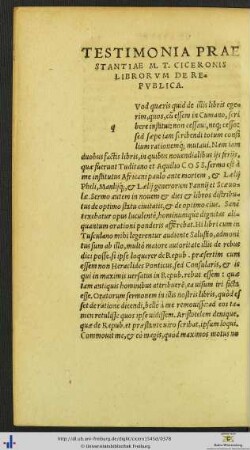 TESTIMONIA PRAE
STANTIAE M. T. CICERONIS
LIBRORVM DE RE-
PVBLICA.
Vod quæris quid de illis libris ege-
rim, quos, cũ essem in Cumano, scri
q
bere institui: non cessaui, neq; cesso:
sed sæpe iam scribendi totum consi-
lium rationemq; mutaui. Nam iam
duobus factis libris, in quibus nouendialibus ijs ferijs,
quæ fuerunt Tuditano et Aquilio COSS. sermo est à
me institutus Africani paulo ante mortem, & Lælij
Phili, Manilijq; & Lælij generorum Fannij et Scæuo-
læ. Sermo autem in nouem & dies & libros distribu-
tus de optimo statu ciuitatis, & de optimo ciue. Sanè
texebatur opus luculentè, hominumque dignitas ali-
quantum orationi ponderis afferebat. Hi libri cum in
Tusculano mihi legerentur audiente Salustio, admoni
tus sum ab illo, multò maiore autoritate illis de rebus
dici posse, si ipse loquerer de Repub. præsertim cum
essem non Heraclides Ponticus, sed Consularis, & is
qui in maximis uersatus in Repub. rebus essem: quæ
tam antiquis hominibus attribuerẽ, ea uisum iri ficta
esse. Oratorum sermonem in illis nostris libris, quòd es
set de ratione dicendi, bellè à me remouisse: ad eos ta-
men retulisse quos ipse uidissem. Aristotelem denique,
quæ de Repub. et præstante uiro scribat, ipsum loqui.
Commouit me, & eò magis, quòd maximos motus no
http://dl.ub.uni-freiburg.de/diglit/cicero1545d/0378
© Universitätsbibliothek Freiburg